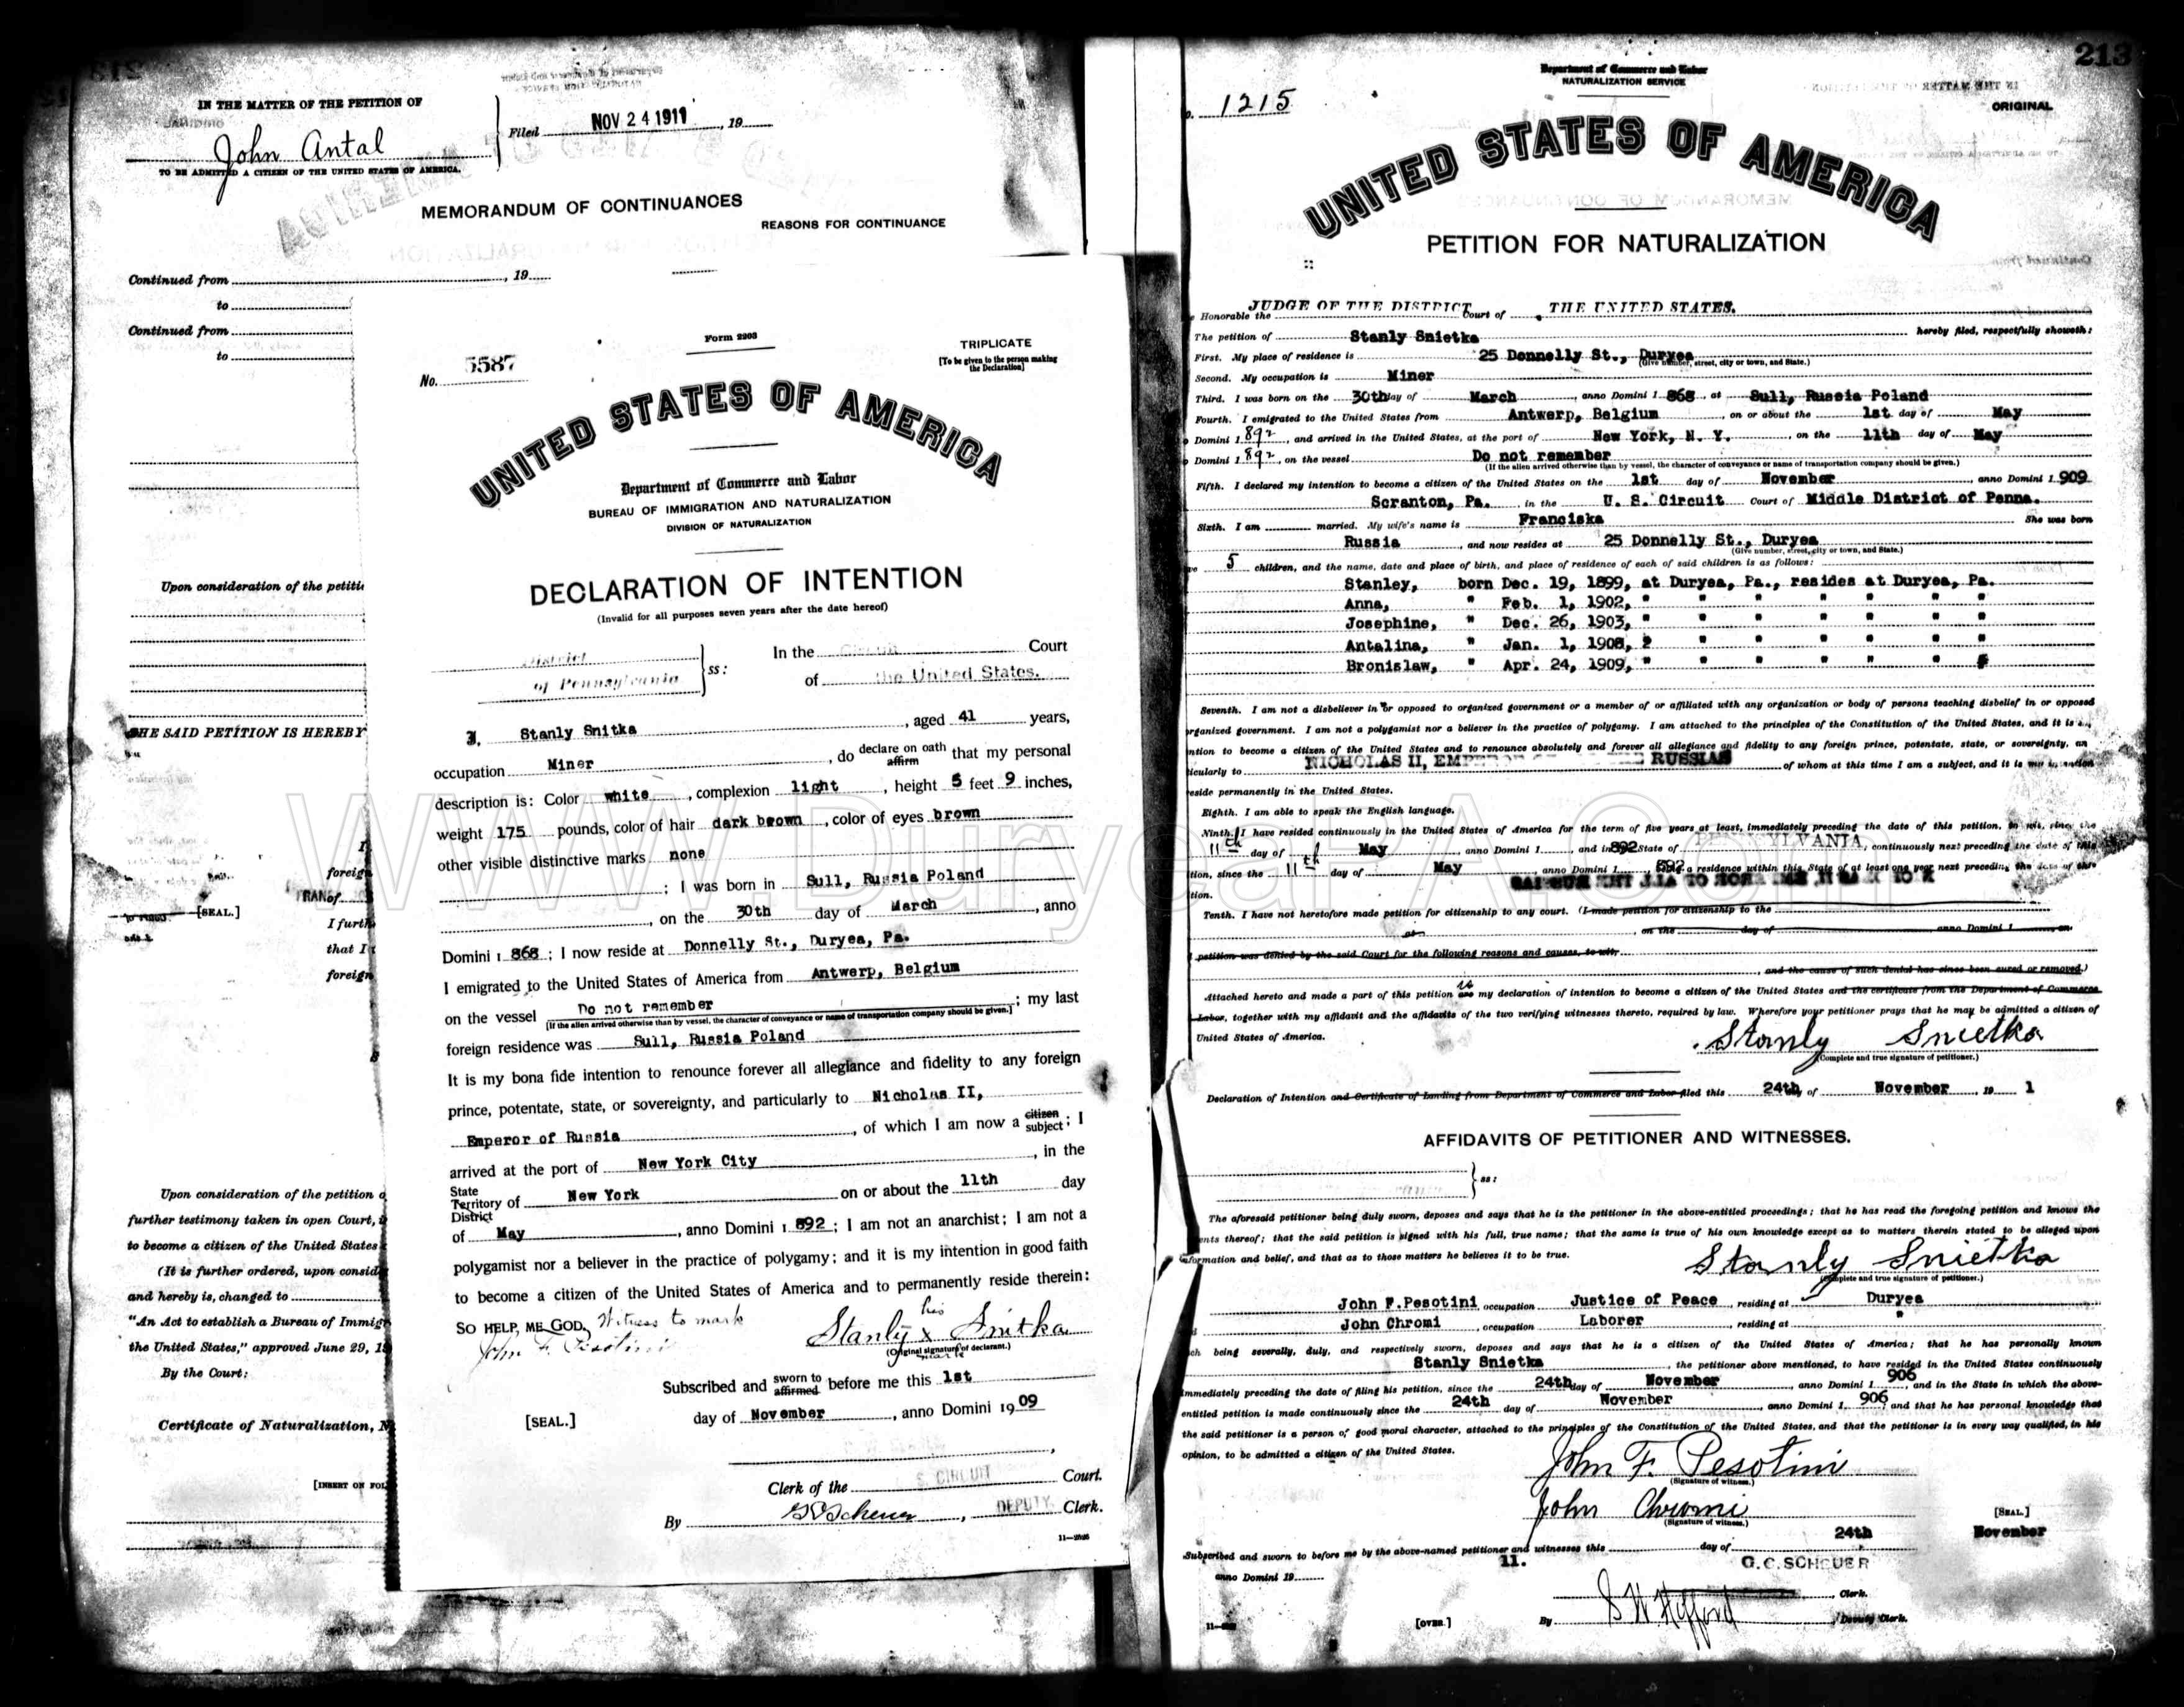 IN THE MATTER OF THE PETITION OF
John Antal
TO BE ADMITTED A CITIZEN OF THE UNITED STATES OF AMERICA.
Filed NOV 24 1911, 19
MEMORANDUM OF CONTINUANCES
REASONS FOR CONTINUANCE
Continued from , 19
to
Continued from
to
Upon consideration of the petiti
SAID PETITION IS HEREBY
[SEAL.]
foreig
I furth
that I
foreign
Upon consideration of the petition
further testimony taken in open Court,
to become a citizen of the United States
(It is further ordered, upon consid
and hereby is, changed to
"An Act to establish a Bureau of Immig
the United States," approved June 29, 1
By the Court:
Certificate of Naturalization, N
[INSERT ON FOL
Form 2203
TRIPLICATE
[To be given to the person making
the Declaration]
No. 5587
UNITED STATES OF AMERICA
Department of Commerce and Labor
BUREAU OF IMMIGRATION AND NATURALIZATION
DIVISION OF NATURALIZATION
DECLARATION OF INTENTION
(Invalid for all purposes seven years after the date hereof)
District
of Pennsylvania ss:
In the Circuit Court
of the United States.
I, Stanly Snitka, aged 41 years,
occupation Miner, do declare on oath affirm that my personal
description is: Color white, complexion light, height 5 feet 9 inches,
weight 175 pounds, color of hair dark brown, color of eyes brown
other visible distinctive marks none
; I was born in Sull, Russia Poland
, on the 30th day of March, anno
Domini 1 868; I now reside at Donnelly St., Duryea, Pa.
I emigrated to the United States of America from Antwerp, Belgium
on the vessel Do not remember; my last
[If the alien arrived otherwise than by vessel, the character of conveyance or name of transportation company should be given.]
foreign residence was Sull, Russia Poland
It is my bona fide intention to renounce forever all allegiance and fidelity to any foreign
prince, potentate, state, or sovereignty, and particularly to Nicholas II,
Emperor of Russia, of which I am now a citizen subject; I
arrived at the port of New York City, in the
State Territory District of New York on or about the 11th day
of May, anno Domini 1 892; I am not an anarchist; I am not a
polygamist nor a believer in the practice of polygamy; and it is my intention in good faith
to become a citizen of the United States of America and to permanently reside therein:
SO HELP ME GOD. Witness to mark
John F. Pesotini
Stanly his x mark Snitka
(Original signature of declarant.)
Subscribed and sworn to affirmed before me this 1st
[SEAL.]
day of November, anno Domini 19 09
Clerk of the S. CIRCUIT Court.
By G C Scheuer, DEPUTY Clerk.
WWW.DuryeaPA.Com
213
Department of Commerce and Labor
NATURALIZATION SERVICE
1215
ORIGINAL
UNITED STATES OF AMERICA
PETITION FOR NATURALIZATION
Honorable the JUDGE OF THE DISTRICT Court of THE UNITED STATES.
The petition of Stanly Snietka hereby filed, respectfully showeth:
First. My place of residence is 25 Donnelly St., Duryea
(Give number, street, city or town, and State.)
Second. My occupation is Miner
Third. I was born on the 30th day of March, anno Domini 1 868, at Sull, Russia Poland
Fourth. I emigrated to the United States from Antwerp, Belgium, on or about the 1st day of May
Domini 1 892, and arrived in the United States, at the port of New York, N. Y., on the 11th day of May
Domini 1 892, on the vessel Do not remember
(If the alien arrived otherwise than by vessel, the character of conveyance or name of transportation company should be given.)
Fifth. I declared my intention to become a citizen of the United States on the 1st day of November, anno Domini 1 909
Scranton, Pa. in the U. S. Circuit Court of Middle District of Penna.
Sixth. I am married. My wife's name is Franciska She was born
Russia, and now resides at 25 Donnelly St., Duryea
(Give number, street, city or town, and State.)
5 children, and the name, date and place of birth, and place of residence of each of said children is as follows:
Stanley, born Dec. 19, 1899, at Duryea, Pa., resides at Duryea, Pa.
Anna, " Feb. 1, 1902, " " " " " " "
Josephine, " Dec. 26, 1903, " " " " " " "
Antalina, " Jan. 1, 1908, " " " " " "
Bronislaw, " Apr. 24, 1909, " " " " " "
Seventh. I am not a disbeliever in or opposed to organized government or a member of or affiliated with any organization or body of persons teaching disbelief in or opposed
organized government. I am not a polygamist nor a believer in the practice of polygamy. I am attached to the principles of the Constitution of the United States, and it is
ntion to become a citizen of the United States and to renounce absolutely and forever all allegiance and fidelity to any foreign prince, potentate, state, or sovereignty, an
icularly to NICHOLAS II, EMPEROR RUSSIAS of whom at this time I am a subject, and it is my intention
reside permanently in the United States.
Eighth. I am able to speak the English language.
Ninth. I have resided continuously in the United States of America for the term of five years at least, immediately preceding the date of this petition, to wit, since the
11th day of May anno Domini 1 892 and in State of PENNSYLVANIA, continuously next preceding the date of this
tion, since the 11th day of May, anno Domini 1 892 a residence within this State of at least one year next preceding the date of this
tion.
Tenth. I have not heretofore made petition for citizenship to any court. (I made petition for citizenship to the
at , on the day of anno Domini 1
petition was denied by the said Court for the following reasons and causes, to wit,
, and the cause of such denial has since been cured or removed.)
Attached hereto and made a part of this petition are is my declaration of intention to become a citizen of the United States and the certificate from the Department of Commerce
Labor, together with my affidavit and the affidavits of the two verifying witnesses thereto, required by law. Wherefore your petitioner prays that he may be admitted a citizen of
United States of America.
Stanly Snietka
(Complete and true signature of petitioner.)
Declaration of Intention and Certificate of Landing from Department of Commerce and Labor filed this 24th of November, 19 1
AFFIDAVITS OF PETITIONER AND WITNESSES.
ss:
The aforesaid petitioner being duly sworn, deposes and says that he is the petitioner in the above-entitled proceedings; that he has read the foregoing petition and knows the
ents thereof; that the said petition is signed with his full, true name; that the same is true of his own knowledge except as to matters therein stated to be alleged upon
information and belief, and that as to those matters he believes it to be true.
Stanly Snietka
(Complete and true signature of petitioner.)
John F. Pesotini, occupation Justice of Peace, residing at Duryea
John Chromi, occupation Laborer, residing at "
ch being severally, duly, and respectively sworn, deposes and says that he is a citizen of the United States of America; that he has personally known
Stanly Snietka, the petitioner above mentioned, to have resided in the United States continuously
immediately preceding the date of filing his petition, since the 24th day of November, anno Domini 1 906, and in the State in which the above-
entitled petition is made continuously since the 24th day of November, anno Domini 1 906 and that he has personal knowledge that
the said petitioner is a person of good moral character, attached to the principles of the Constitution of the United States, and that the petitioner is in every way qualified, in his
opinion, to be admitted a citizen of the United States.
John F. Pesotini
(Signature of witness.)
John Chromi
(Signature of witness.)
[SEAL.]
Subscribed and sworn to before me by the above-named petitioner and witnesses this 24th day of November
anno Domini 19 11.
G. C. SCHEUER
, Clerk.
[OVER.]
By , Deputy Clerk.